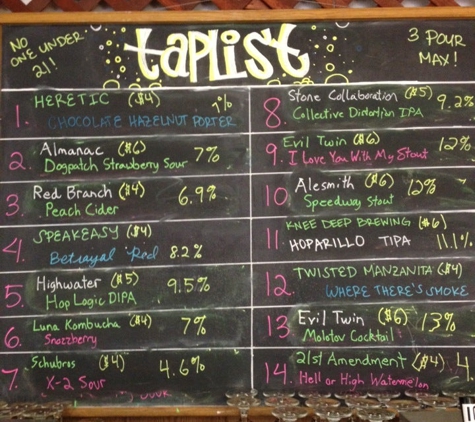 NO
ONE UNDER
21!
taplist
3 POUR
MAX!
1. HERETIC ($4) 7%
CHOCOLATE HAZELNUT PORTER
2. Almanac ($6)
Dogpatch Strawberry Sour 7%
3 Red Branch ($4) 6.9%
Peach Cider
4. SPEAKEASY ($4)
Betrayal Red 8.2%
5. Highwater ($5) 9.5%
Hop Logic DIPA
6. Luna Kombucha ($4) 7%
Snozzberry
7. Schubros ($4) 4.6%
X-2 Sour
SOUR
8. Stone Collaboration ($5) 9.2%
Collective Distortion IPA
9. Evil Twin ($6) 12%
I Love You With My Stout
10 Alesmith ($6) 12%
Speedway Stout
11. KNEE DEEP BREWING ($6)
HOPARILLO TIPA 11.1%
12. TWISTED MANZANITA ($4)
WHERE THERE'S SMOKE
13 Evil Twin ($6) 13%
Molotov Cocktail
14. 21st Amendment ($4) 4.
Hell or High Watermelon